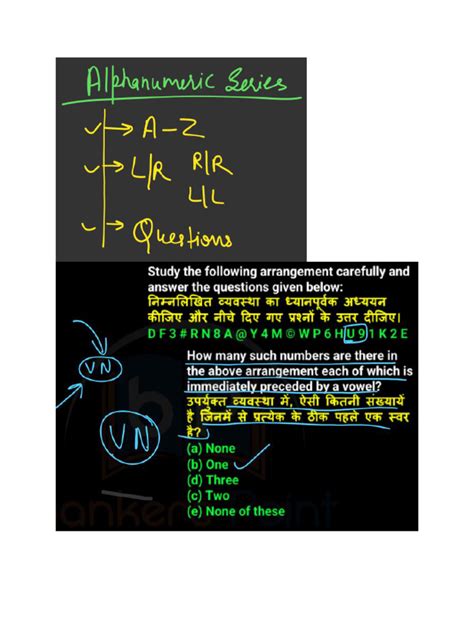 Alphanumeric Series
→ A-Z
→ L/R R/R
L/L
→ Questions
Study the following arrangement carefully and
answer the questions given below:
निम्नलिखित व्यवस्था का ध्यानपूर्वक अध्ययन
कीजिए और नीचे दिए गए प्रश्नों के उत्तर दीजिए।
D F 3 # R N 8 A @ Y 4 M © W P 6 H U 9 1 K 2 E
How many such numbers are there in
VN
the above arrangement each of which is
immediately preceded by a vowel?
उपर्युक्त व्यवस्था में, ऐसी कितनी संख्यायें
है जिनमें से प्रत्येक के ठीक पहले एक स्वर
है?
VN
(a) None
(b) One
(d) Three
(c) Two
(e) None of these